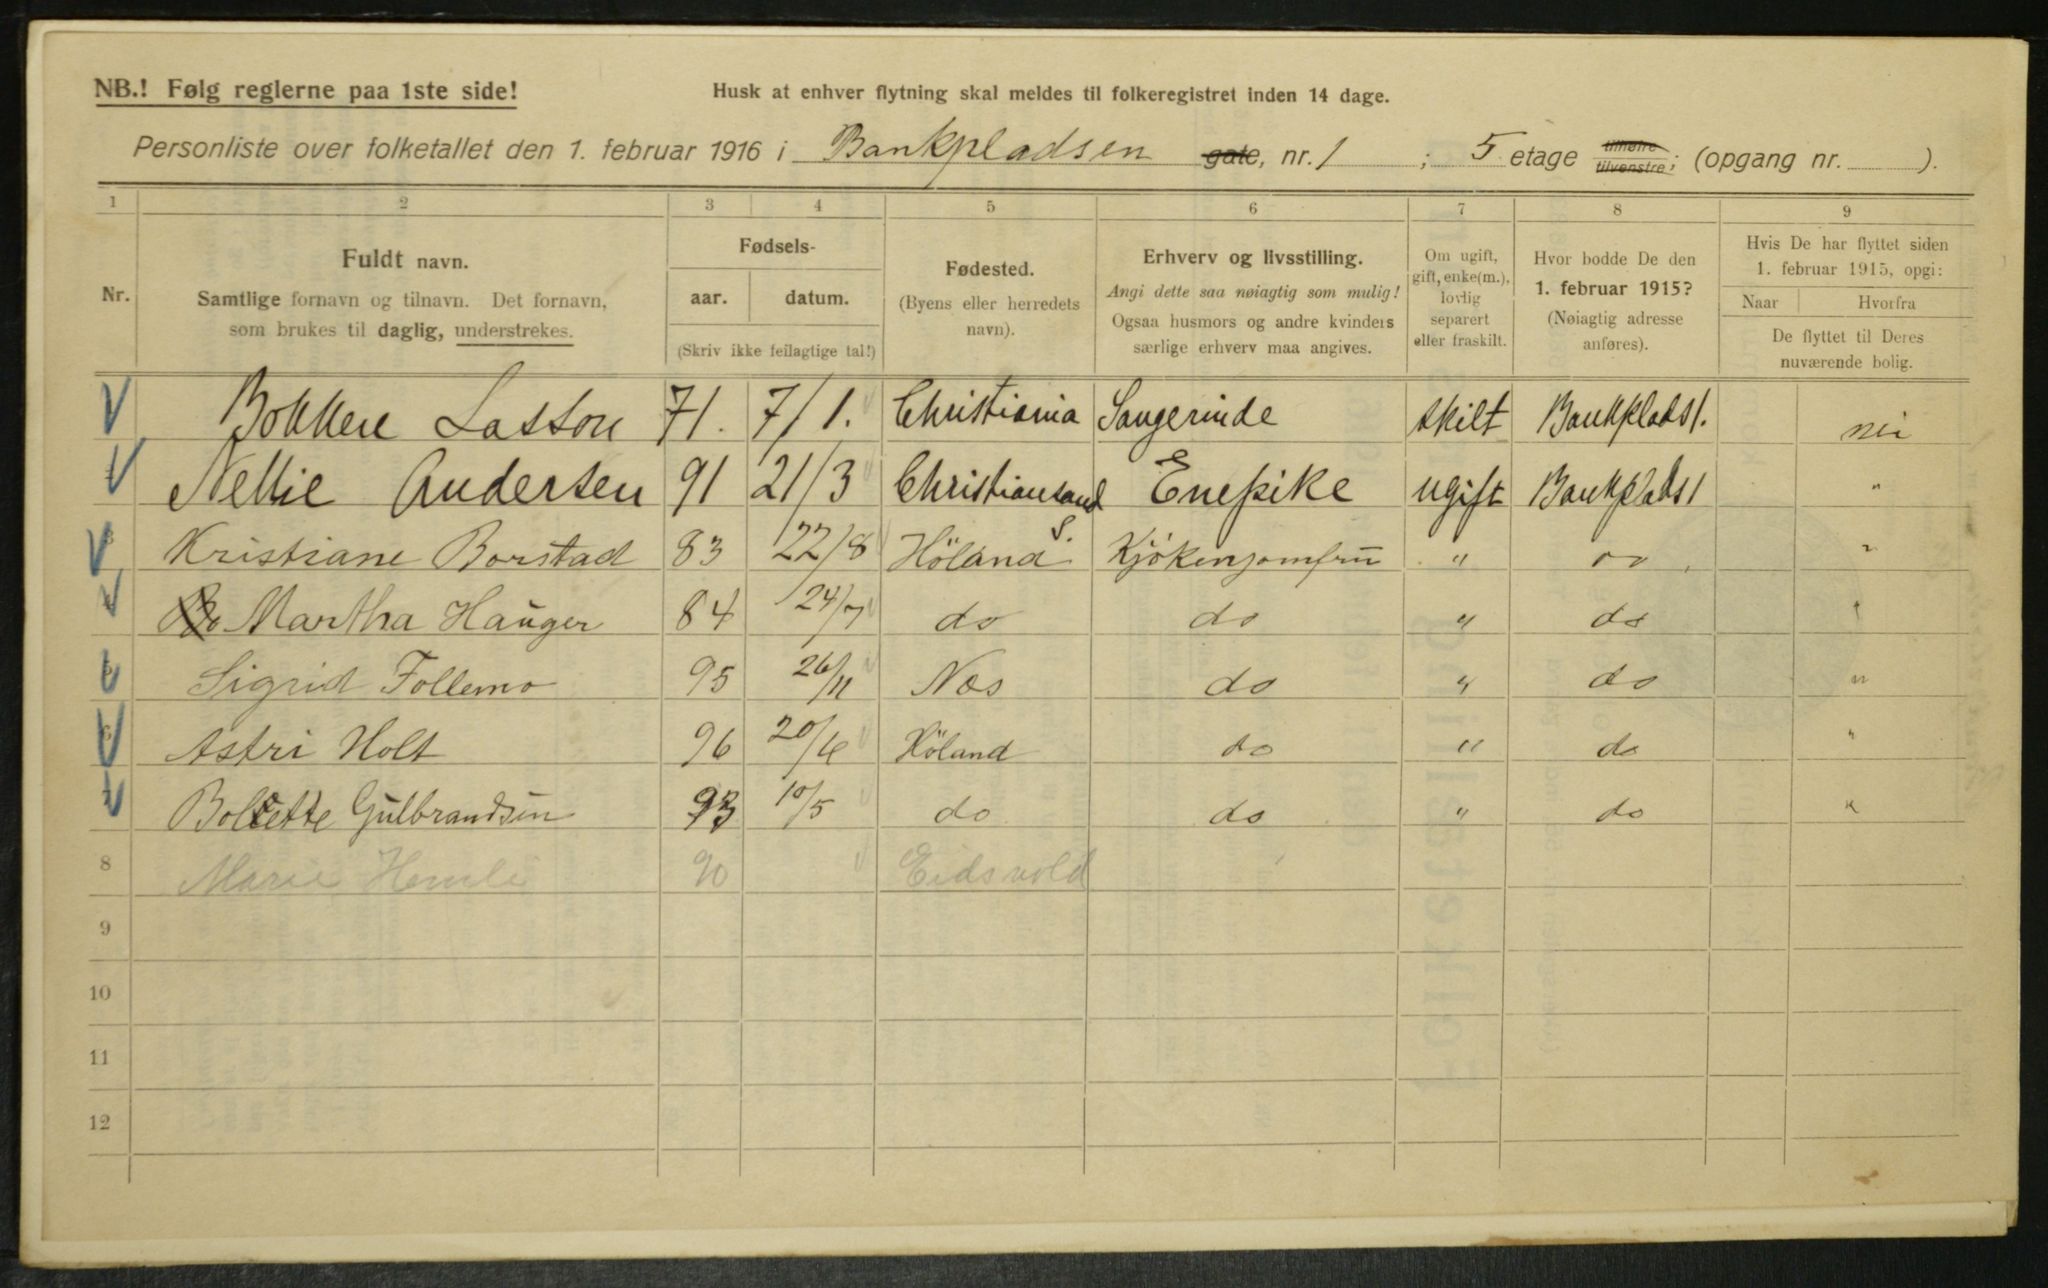 NB.! Følg reglerne paa 1ste side!
Husk at enhver flytning skal meldes til folkeregistret inden 14 dage.
Personliste over folketallet den 1. februar 1916 i Bankpladsen gate, nr. 1 ; 5. etage tilhøire tilvenstre; (opgang nr. ).
1 2 3 4 5 6 7 8 9
Nr.
Fuldt navn.
Samtlige fornavn og tilnavn. Det fornavn,
som brukes til daglig, understrekes.
Fødsels-
aar. datum.
(Skriv ikke feilagtige tal!)
Fødested.
(Byens eller herredets
navn).
Erhverv og livsstilling.
Angi dette saa nøiagtig som mulig!
Ogsaa husmors og andre kvinders
særlige erhverv maa angives.
Om ugift,
gift, enke(m.),
lovlig
separert
eller fraskilt.
Hvor bodde De den
1. februar 1915?
(Nøiagtig adresse
anføres).
Hvis De har flyttet siden
1. februar 1915, opgi:
Naar Hvorfra
De flyttet til Deres
nuværende bolig.
Bokken Lasson 71. 7/1. Christiania Sangerinde skilt Bankplads 1. nei
Nellie Andersen 91 21/3 Christiansand S. Enepike ugift Bankplads 1 "
3 Kristiane Borstad 83 22/8 Höland Kjökenjomfru " do "
4 Martha Hauger 84 24/7 do do " do "
5 Sigrid Follemo 95 26/11 Nes do " do "
6 Astri Holt 96 20/6 Höland do " do "
7 Bolette Gulbrandsen 93 10/5 do do " do "
8 Marie Hemli 90 Eidsvold
9
10
11
12